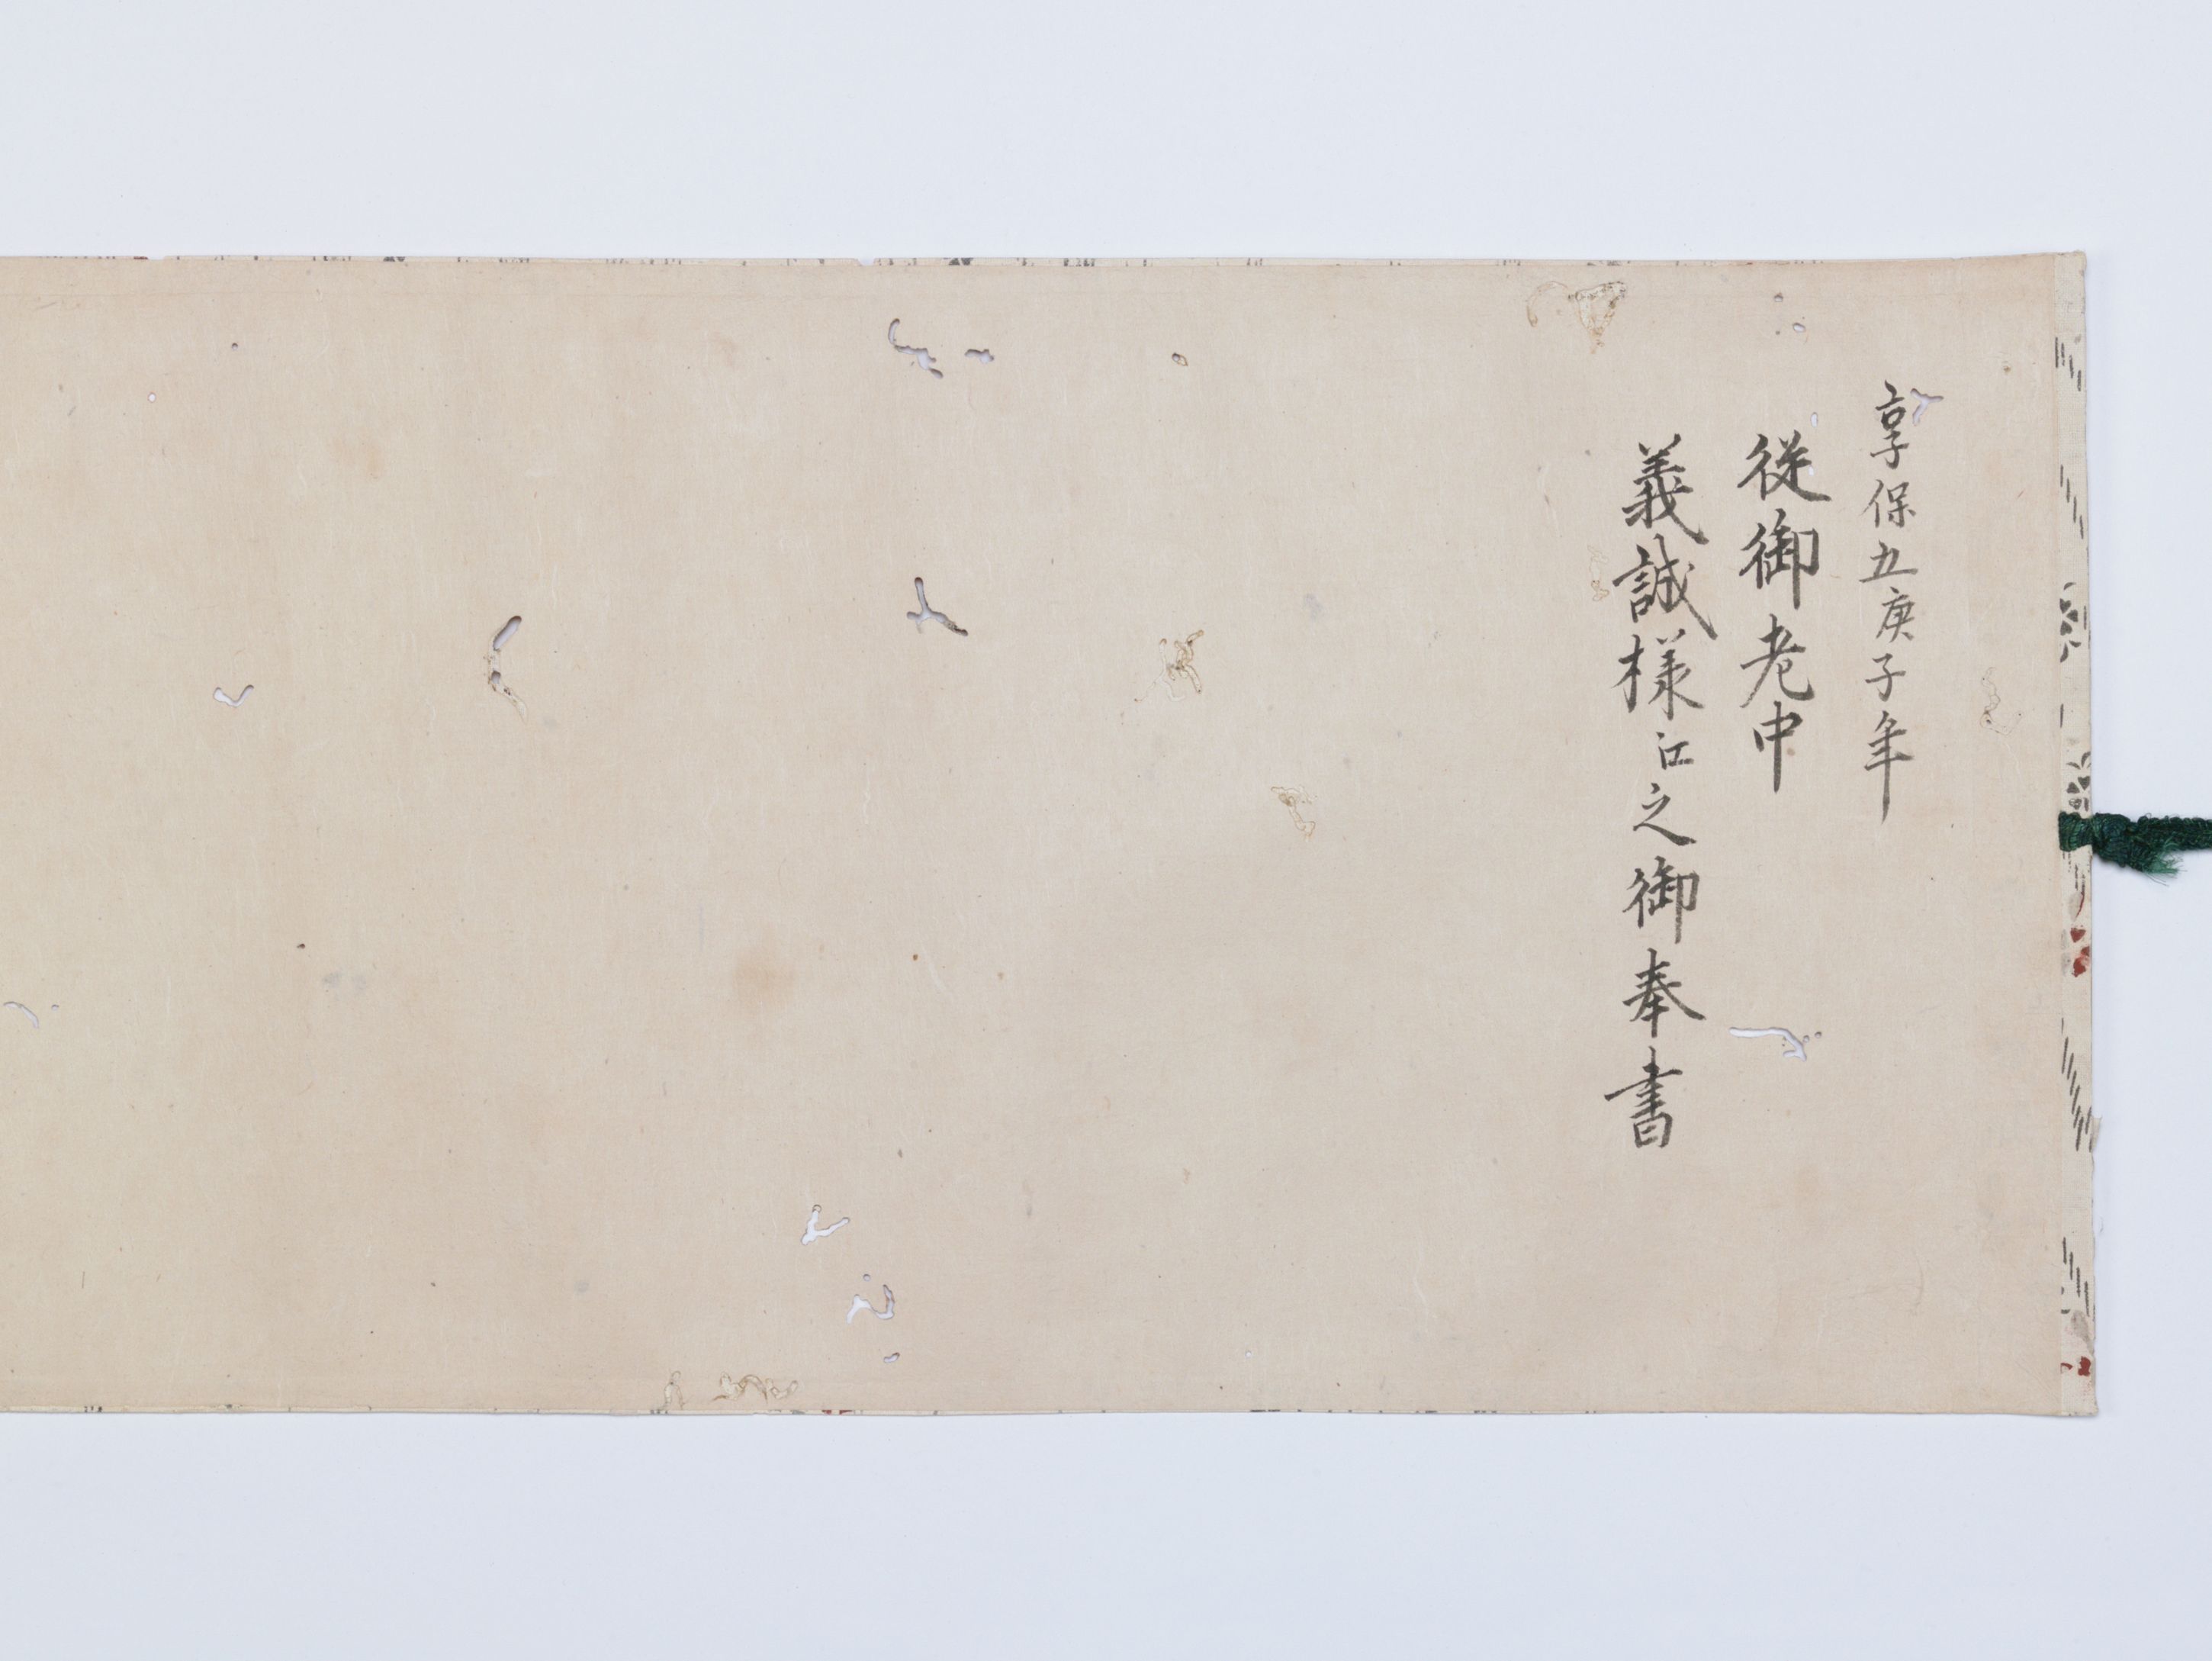 享保五庚子年
従御老中
義誠様江之御奉書